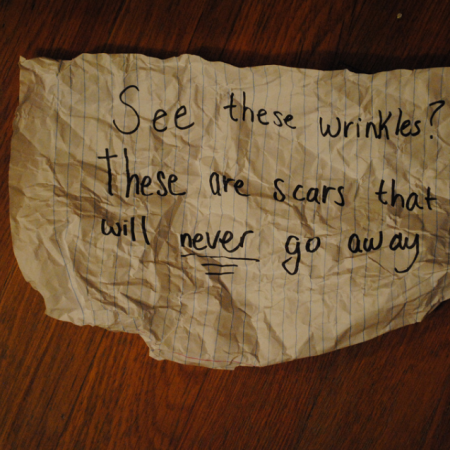 See these wrinkles?
These are scars that
will never go away